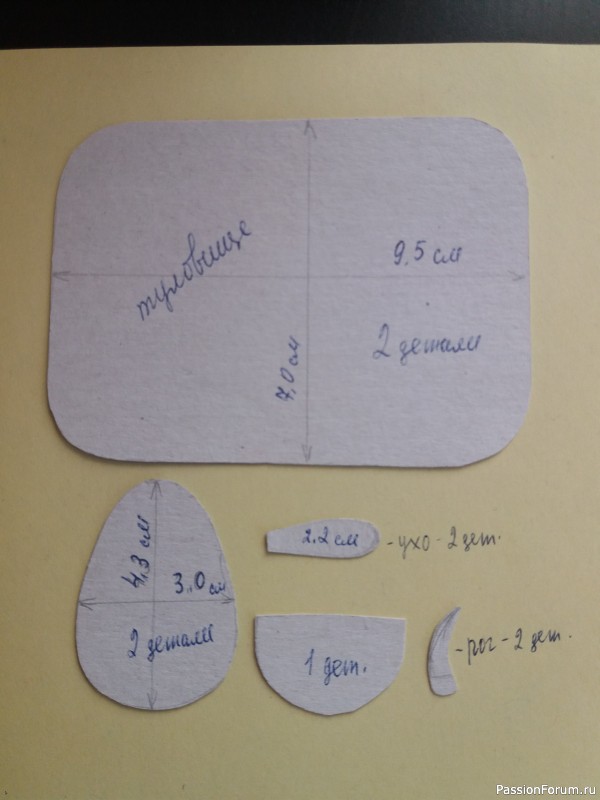 туловище
9,5 см
2 детали
7,0 см
4,3 см
3,0 см
2 детали
2,2 см
-ухо-2 дет.
1 дет.
-рог-2 дет.
PassionForum.ru